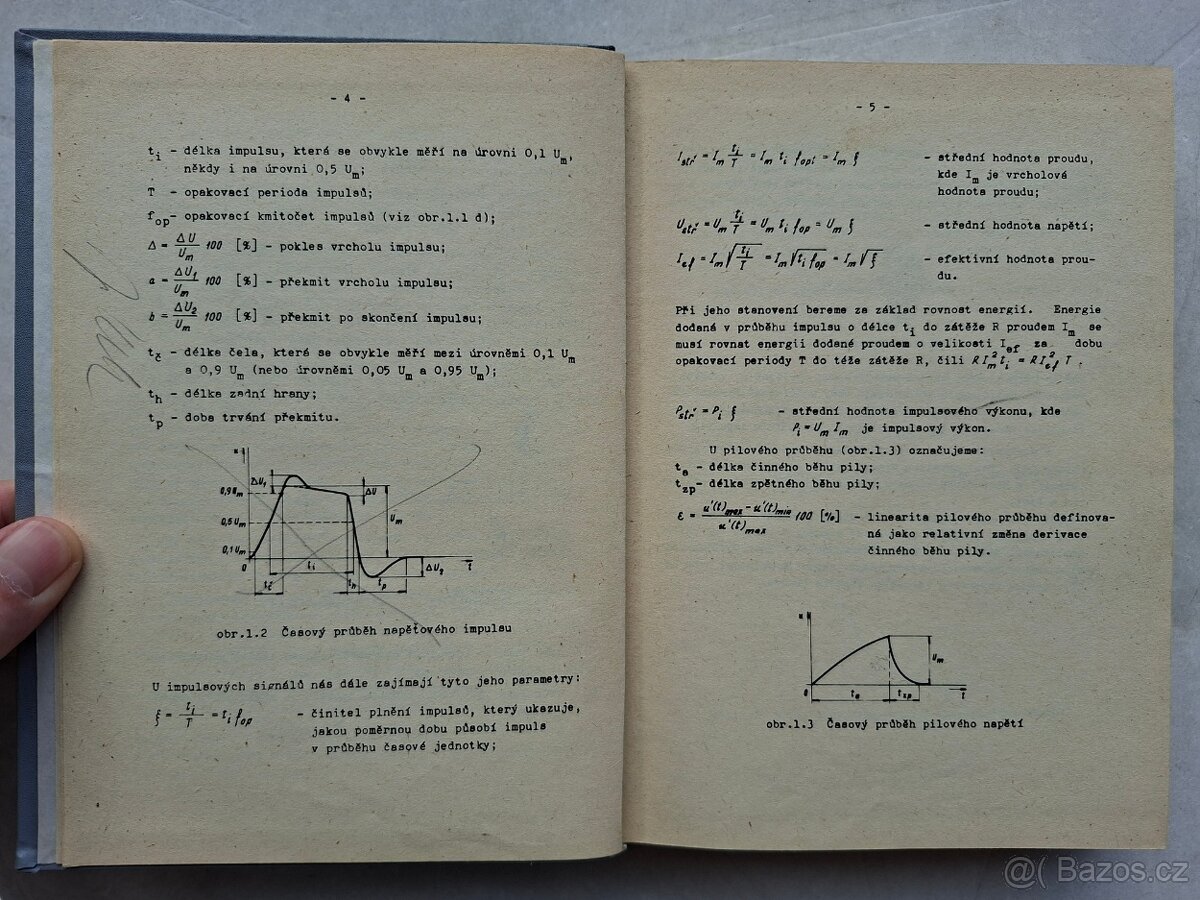 - 4 -
t_i - délka impulsu, která se obvykle měří na úrovni 0,1 U_m,
někdy i na úrovni 0,5 U_m;
T - opakovací perioda impulsů;
f_op - opakovací kmitočet impulsů (viz obr.1.1 d);
Δ = ΔU/U_m 100 [%] - pokles vrcholu impulsu;
a = ΔU_1/U_m 100 [%] - překmit vrcholu impulsu;
b = ΔU_2/U_m 100 [%] - překmit po skončení impulsu;
t_č - délka čela, která se obvykle měří mezi úrovněmi 0,1 U_m
a 0,9 U_m (nebo úrovněmi 0,05 U_m a 0,95 U_m);
t_h - délka zadní hrany;
t_p - doba trvání překmitu.
u
ΔU_1
0,9U_m
ΔU
0,5U_m
U_m
0,1U_m
0
t_č
t_i
t_h
t_p
ΔU_2
t
obr.1.2 Časový průběh napěťového impulsu
U impulsových signálů nás dále zajímají tyto jeho parametry:
ξ = t_i/T = t_i f_op - činitel plnění impulsů, který ukazuje,
jakou poměrnou dobu působí impuls
v průběhu časové jednotky;
- 5 -
I_stř = I_m t_i/T = I_m t_i f_opt = I_m ξ - střední hodnota proudu,
kde I_m je vrcholová
hodnota proudu;
U_stř = U_m t_i/T = U_m t_i f_op = U_m ξ - střední hodnota napětí;
I_ef = I_m √(t_i/T) = I_m √(t_i f_op) = I_m √ξ - efektivní hodnota prou-
du.
Při jeho stanovení bereme za základ rovnost energií. Energie
dodaná v průběhu impulsu o délce t_i do zátěže R proudem I_m se
musí rovnat energii dodané proudem o velikosti I_ef za dobu
opakovací periody T do téže zátěže R, čili R I_m^2 t_i = R I_ef^2 T.
P_stř = P_i ξ - střední hodnota impulsového výkonu, kde
P_i = U_m I_m je impulsový výkon.
U pilového průběhu (obr.1.3) označujeme:
t_a - délka činného běhu pily;
t_zp - délka zpětného běhu pily;
ε = (u'(t)_max - u'(t)_min)/u'(t)_max 100 [%] - linearita pilového průběhu definova-
ná jako relativní změna derivace
činného běhu pily.
u
U_m
0
t_a
t_zp
t
obr.1.3 Časový průběh pilového napětí
@( Bazos.cz